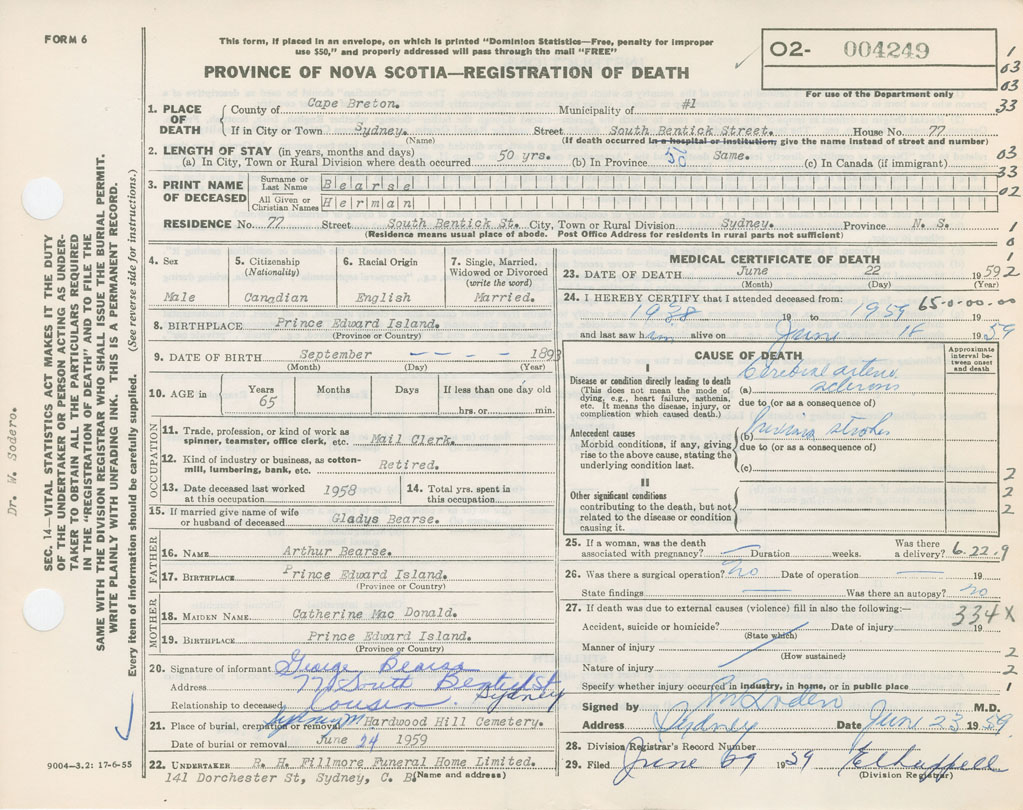 FORM 6
This form, if placed in an envelope, on which is printed "Dominion Statistics—Free, penalty for improper
use $50," and properly addressed will pass through the mail "FREE"
PROVINCE OF NOVA SCOTIA—REGISTRATION OF DEATH
02- 004249
For use of the Department only
1. PLACE OF DEATH
County of Cape Breton. Municipality of #1
If in City or Town Sydney. Street South Bentick Street. House No. 77
(Name) (If death occurred in a hospital or institution, give the name instead of street and number)
2. LENGTH OF STAY (in years, months and days)
(a) In City, Town or Rural Division where death occurred 50 yrs. (b) In Province 50 Same. (c) In Canada (if immigrant)
3. PRINT NAME OF DECEASED
Surname or Last Name Bearse
All Given or Christian Names Herman
RESIDENCE No. 77 Street South Bentick St. City, Town or Rural Division Sydney. Province N. S.
(Residence means usual place of abode. Post Office Address for residents in rural parts not sufficient)
4. Sex Male
5. Citizenship (Nationality) Canadian
6. Racial Origin English
7. Single, Married, Widowed or Divorced (write the word) Married.
8. BIRTHPLACE Prince Edward Island.
(Province or Country)
9. DATE OF BIRTH September — — — — 1893
(Month) (Day) (Year)
10. AGE in Years 65 Months Days If less than one day old
hrs. or min.
OCCUPATION
11. Trade, profession, or kind of work as
spinner, teamster, office clerk, etc. Mail Clerk.
12. Kind of industry or business, as cotton-
mill, lumbering, bank, etc. Retired.
13. Date deceased last worked
at this occupation 1958
14. Total yrs. spent in
this occupation
15. If married give name of wife
or husband of deceased Gladys Bearse.
FATHER
16. NAME Arthur Bearse.
17. BIRTHPLACE Prince Edward Island.
(Province or Country)
MOTHER
18. MAIDEN NAME Catherine Mac Donald.
19. BIRTHPLACE Prince Edward Island.
(Province or Country)
20. Signature of informant George Bearse
Address 77 South Bentick St Sydney
Relationship to deceased Cousin.
21. Place of burial, cremation or removal Sydney Hardwood Hill Cemetery.
Date of burial or removal June 24 1959
22. UNDERTAKER R. H. Fillmore Funeral Home Limited.
141 Dorchester St, Sydney, C. B. (Name and address)
MEDICAL CERTIFICATE OF DEATH
23. DATE OF DEATH June 22 1959
(Month) (Day) (Year)
24. I HEREBY CERTIFY that I attended deceased from: 65-0-00-00
1938 19 to 1959 19
and last saw him alive on June 18 1959
CAUSE OF DEATH
Approximate interval between onset and death
I
Disease or condition directly leading to death
(This does not mean the mode of
dying, e.g., heart failure, asthenia,
etc. It means the disease, injury, or
complication which caused death.)
(a) Cerebral arterio sclerosis
due to (or as a consequence of)
Antecedent causes
Morbid conditions, if any, giving
rise to the above cause, stating the
underlying condition last.
(b) strokes
due to (or as a consequence of)
(c)
II
Other significant conditions
contributing to the death, but not
related to the disease or condition
causing it.
25. If a woman, was the death
associated with pregnancy? — Duration weeks. Was there a delivery? 6.22.9
26. Was there a surgical operation? no Date of operation — 19
State findings — Was there an autopsy? no
27. If death was due to external causes (violence) fill in also the following:—
334X
Accident, suicide or homicide? Date of injury 19
(State which)
Manner of injury
(How sustained)
Nature of injury
Specify whether injury occurred in industry, in home, or in public place
Signed by M.D.
Address Sydney Date June 23 1959
28. Division Registrar's Record Number
29. Filed June 1959
(Division Registrar)
1
03
03
33
03
33
02
1
0
1
2
2
2
2
2
2
1
Dr. W. Sodero.
SEC. 14—VITAL STATISTICS ACT MAKES IT THE DUTY
OF THE UNDERTAKER OR PERSON ACTING AS UNDER-
TAKER TO OBTAIN ALL THE PARTICULARS REQUIRED
IN THE "REGISTRATION OF DEATH" AND TO FILE THE
SAME WITH THE DIVISION REGISTRAR WHO SHALL ISSUE THE BURIAL PERMIT.
WRITE PLAINLY WITH UNFADING INK. THIS IS A PERMANENT RECORD.
Every item of information should be carefully supplied. (See reverse side for instructions.)
9004—3.2: 17-6-55